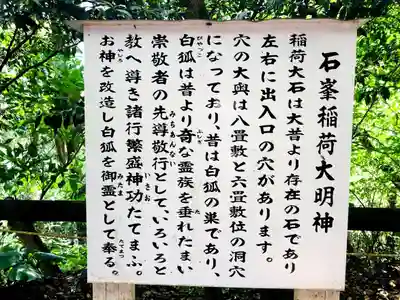 石峯稲荷大明神
稲荷大石は大昔より存在の石であり
左右に出入口の穴があります。
穴の大奥は八畳敷と六畳敷位の洞穴
になっており、昔は白狐の巣であり、
白狐は昔より奇な霊族を垂れたまい
崇敬者の先導敬行として、いろいろと
教へ導き諸行繁盛神功たてまふ。
お神を改造し白狐を御霊として奉る。
びゃっこ
ふしぎ
た
みちあんない
いさお
やしろ
みたま
たてまつ